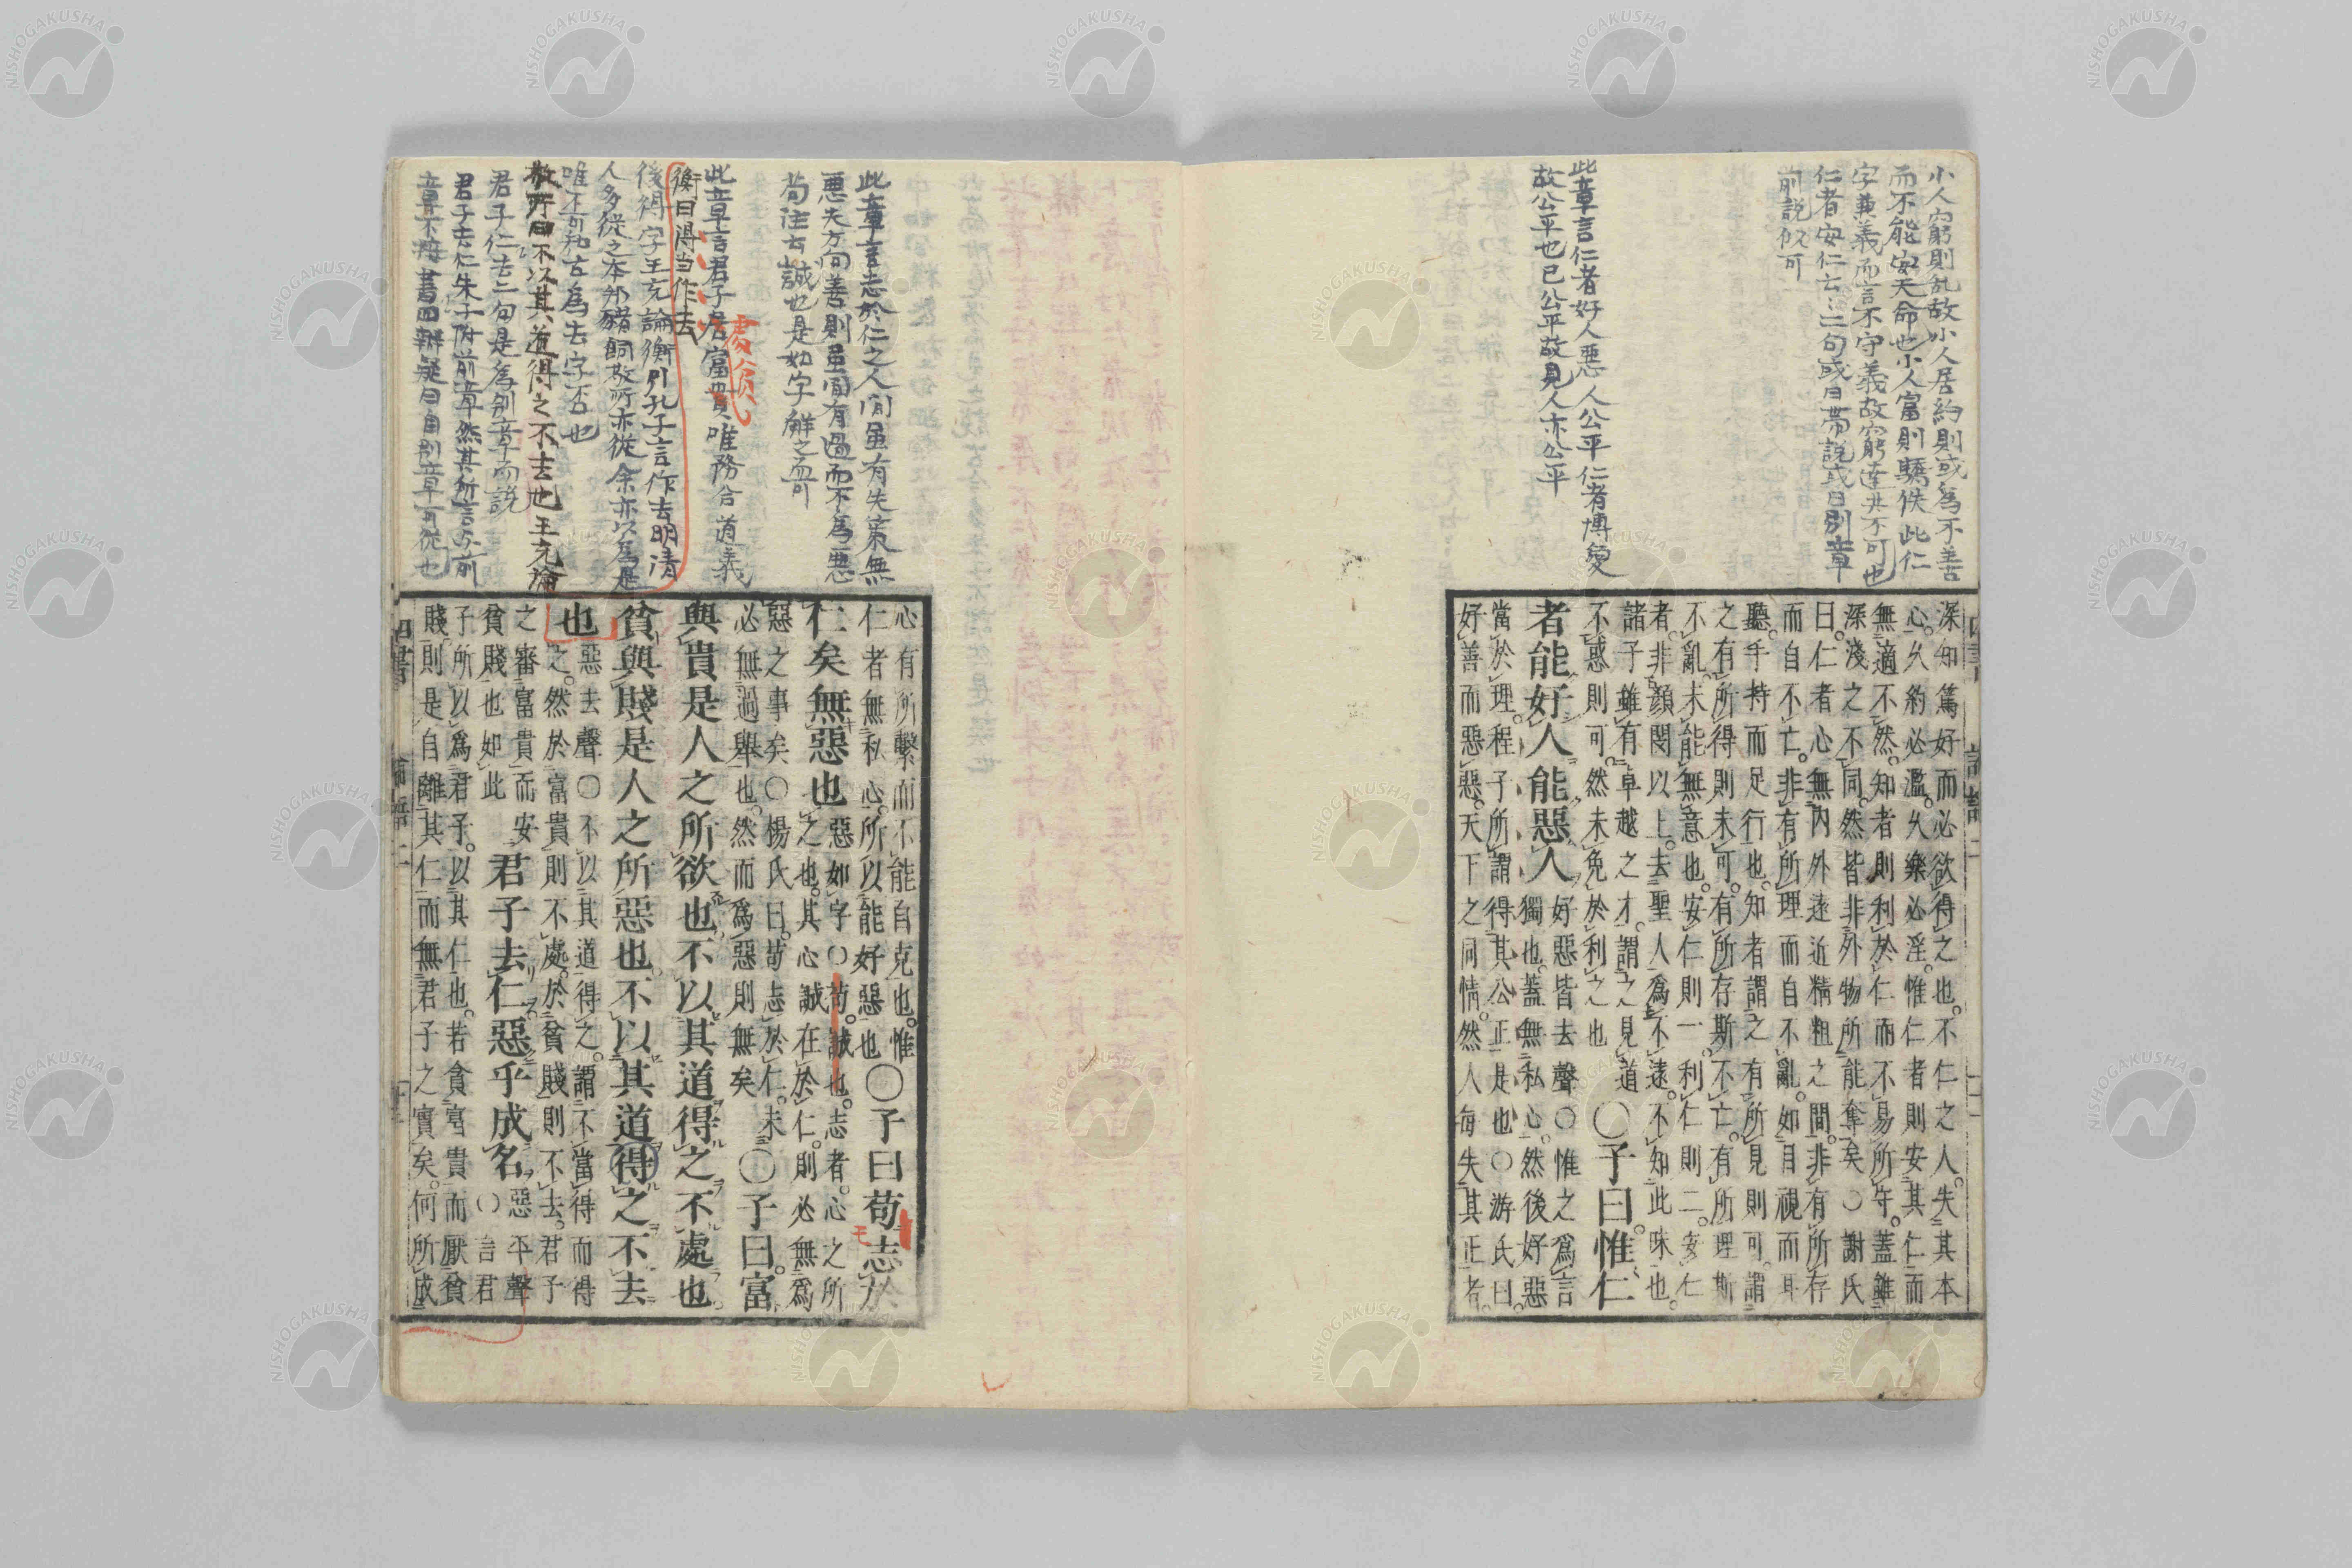 小人窮則乱故小人居約則或為不善
而不能安天命也小人富則驕佚此仁
字兼義而言不守義故窮達共不可也
仁者安仁云々二句或曰帯説或曰別章
前説似可
此章言仁者好人惡人公平仁者博愛
故公平也已公平故見人亦公平
深知篤好而必欲得之也。不仁之人。失其本
心。久約必濫。久樂必淫。惟仁者則安其仁而
無適不然。知者則利於仁而不易所守。蓋雖
深淺之不同。然皆非外物所能奪矣○謝氏
曰。仁者心無內外遠近精粗之間。非有所存
而自不亡。非有所理而自不亂。如目視而耳
聽。手持而足行也。知者謂之有所見則可。謂
之有所得則未可。有所存斯不亡。有所理斯
不亂。未能無意也。安仁則一。利仁則二。安仁
者。非顏閔以上。去聖人為不遠。不知此味也。
諸子雖有卓越之才。謂之見道
不惑則可。然未免於利之也
○子曰。惟仁
者能好人能惡人
好惡皆去聲○惟之為言
獨也。蓋無私心。然後好惡
當於理。程子所謂得其公正是也○游氏曰。
好善而惡惡。天下之同情。然人每失其正者。
此章言志於仁之人間虽有失策無
悪夫方向善則虽間有過而不為悪
苟注云誠也是如字解之無可
此章言君子居富貴唯務合道義
處貧賤
衡曰得当作去
後得字王充論衡引孔子言作去明清
人多從之本邦猪飼敬所亦從余亦以為是
唯不可和古為去字否也
敬所曰不以其道得之不去也王充論
君子仁去二句是為別章而説
君子去仁朱子附前章然其所言与前
章不接書四辨疑曰自別章可從也
心有所繫而不能自克也。惟
仁者無私心。所以能好惡也
○子曰苟志於
仁矣無惡也
惡如字○苟。誠也。志者。心之所
之也。其心誠在於仁。則必無為
惡之事矣○楊氏曰。苟志於仁。未
必無過舉也。然而為惡則無矣
○子曰。富
與貴是人之所欲也不以其道得之不處也
貧與賤是人之所惡也不以其道得之不去
也
惡去聲○不以其道得之。謂不當得而得
之。然於富貴則不處。於貧賤則不去。君子
之審富貴而安
貧賤也如此
君子去仁惡乎成名
惡平聲
○言君
子所以為君子。以其仁也。若貪富貴而厭貧
賤。則是自離其仁。而無君子之實矣。何所成